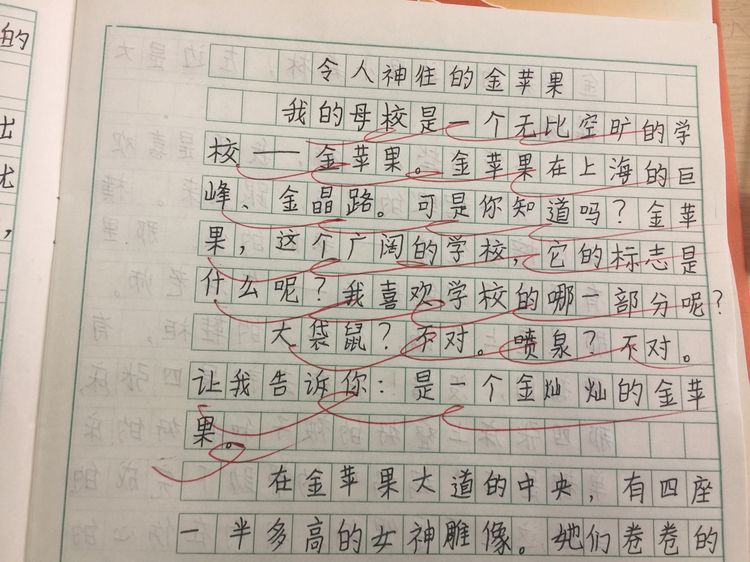 令人神往的金苹果
我的母校是一个无比空旷的学
校——金苹果。金苹果在上海的巨
峰、金晶路。可是你知道吗？金苹
果，这个广阔的学校，它的标志是
什么呢？我喜欢学校的哪一部分呢？
大袋鼠？不对。喷泉？不对。
让我告诉你：是一个金灿灿的金苹
果。
在金苹果大道的中央，有四座
一半多高的女神雕像。她们卷卷的
的
出
尤
，